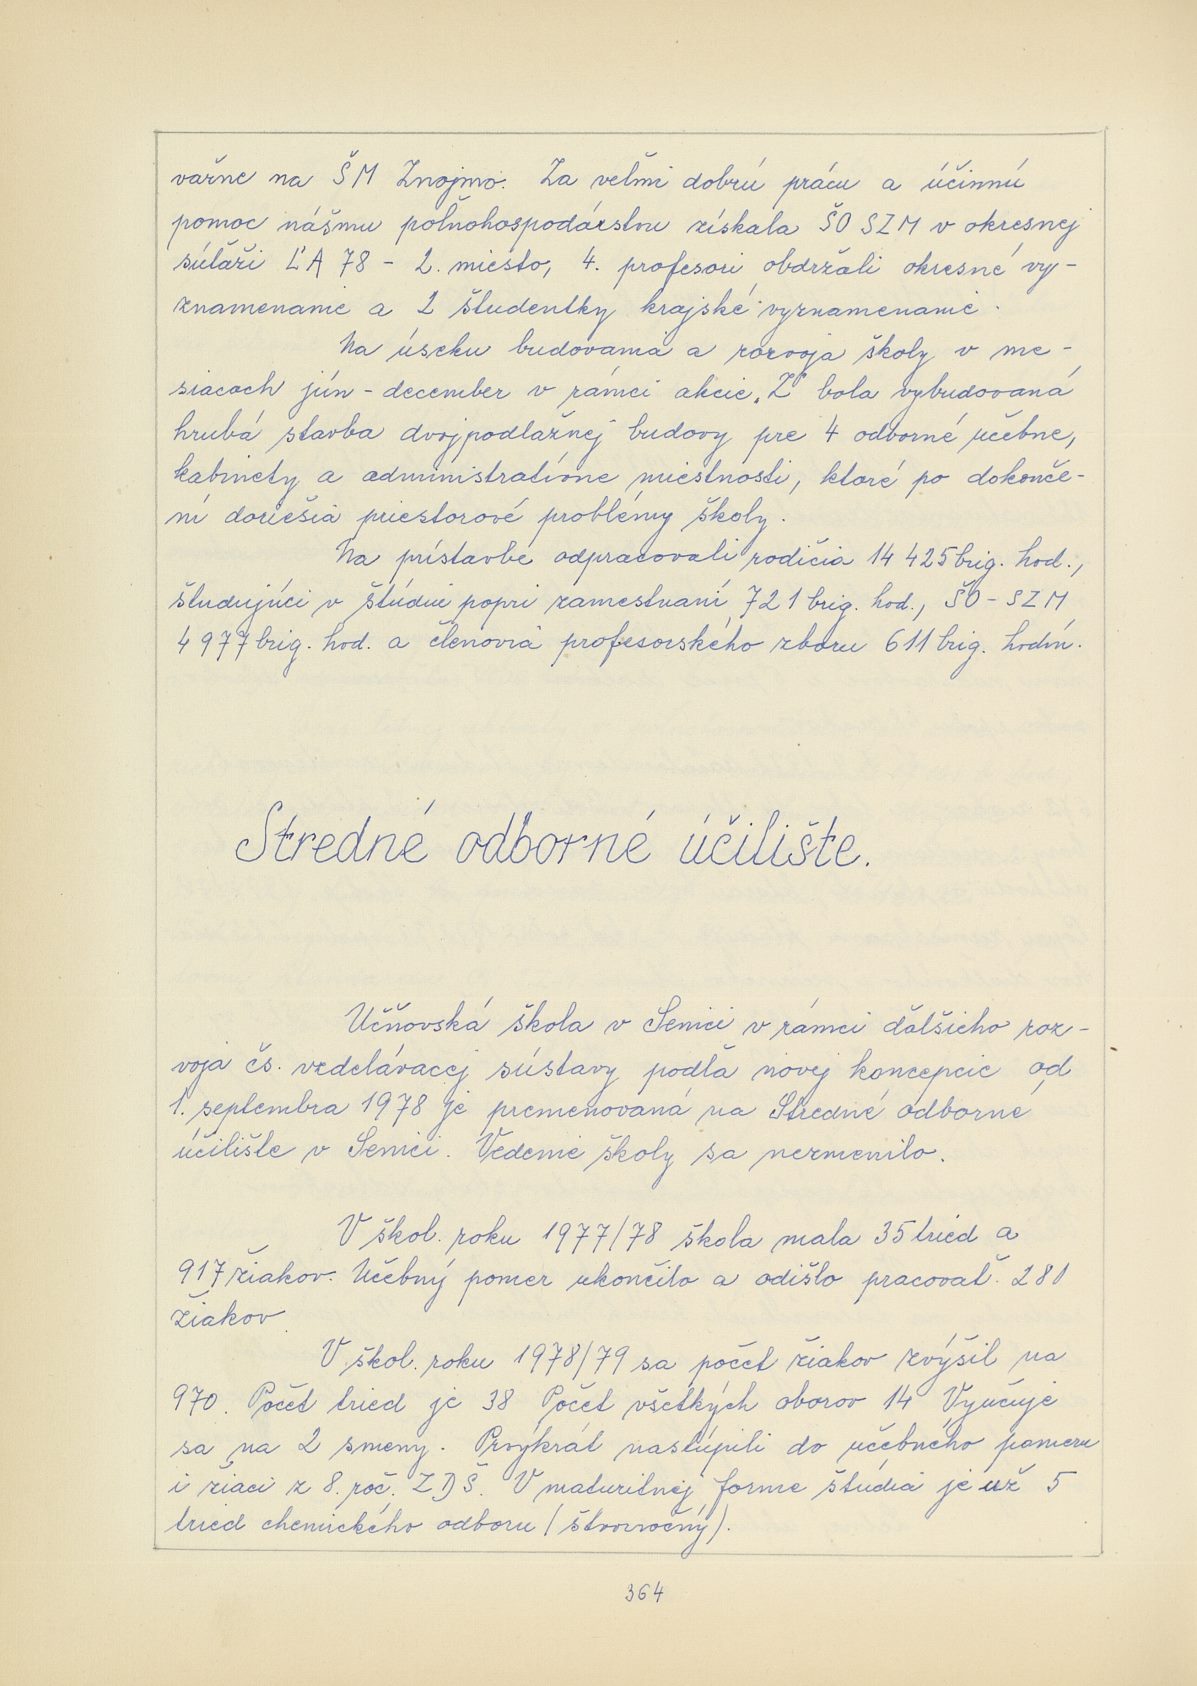 varne na ŠM Znojmo. Za veľmi dobrú prácu a účinnú
pomoc nášmu poľnohospodárstvu získala ŠO SZM v okresnej
súťaži ĽA 78 - 2. miesto, 4. profesori obdržali okresné vy-
znamenanie a 2 študentky krajské vyznamenanie.
Na úseku budovania a rozvoja školy v me-
siacoch jún - december v rámci akcie „Z" bola vybudovaná
hrubá stavba dvojpodlažnej budovy pre 4 odborné učebne,
kabinety a administratívne miestnosti, ktoré po dokonče-
ní doriešia priestorové problémy školy.
Na prístavbe odpracovali rodičia 14 425 brig. hod.,
študujúci v štúdiu popri zamestnaní 721 brig. hod., ŠO - SZM
4 977 brig. hod. a členovia profesorského zboru 611 brig. hodín.
Stredné odborné účilište.
Učňovská škola v Senici v rámci ďalšieho roz-
voja čs. vzdelávacej sústavy podľa novej koncepcie od
1. septembra 1978 je premenovaná na Stredné odborné
účilište v Senici. Vedenie školy sa nezmenilo.
V škol. roku 1977/78 škola mala 35 tried a
917 žiakov. Učebný pomer ukončilo a odišlo pracovať 280
žiakov.
V škol. roku 1978/79 sa počet žiakov zvýšil na
970. Počet tried je 38 Počet všetkých oborov 14 Vyučuje
sa na 2 smeny. Prvýkrát nastúpili do učebného pomeru
i žiaci z 8. roč. ZDŠ. V maturitnej forme štúdia je už 5
tried chemického odboru (štvorročný).
364